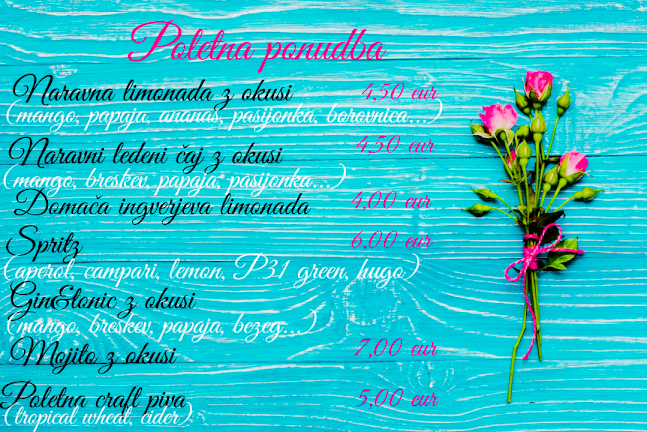 Poletna ponudba
Naravna limonada z okusi 4,50 eur
(mango, papaja, ananas, pasijonka, borovnica...)
Naravni ledeni čaj z okusi 4,50 eur
(mango, breskev, papaja, pasijonka...)
Domača ingverjeva limonada 4,00 eur
Spritz 6,00 eur
(aperol, campari, lemon, P31 green, hugo)
Gin&tonic z okusi
(mango, breskev, papaja, bezeg...)
Mojito z okusi 7,00 eur
Poletna craft piva 5,00 eur
(tropical wheat, cider)